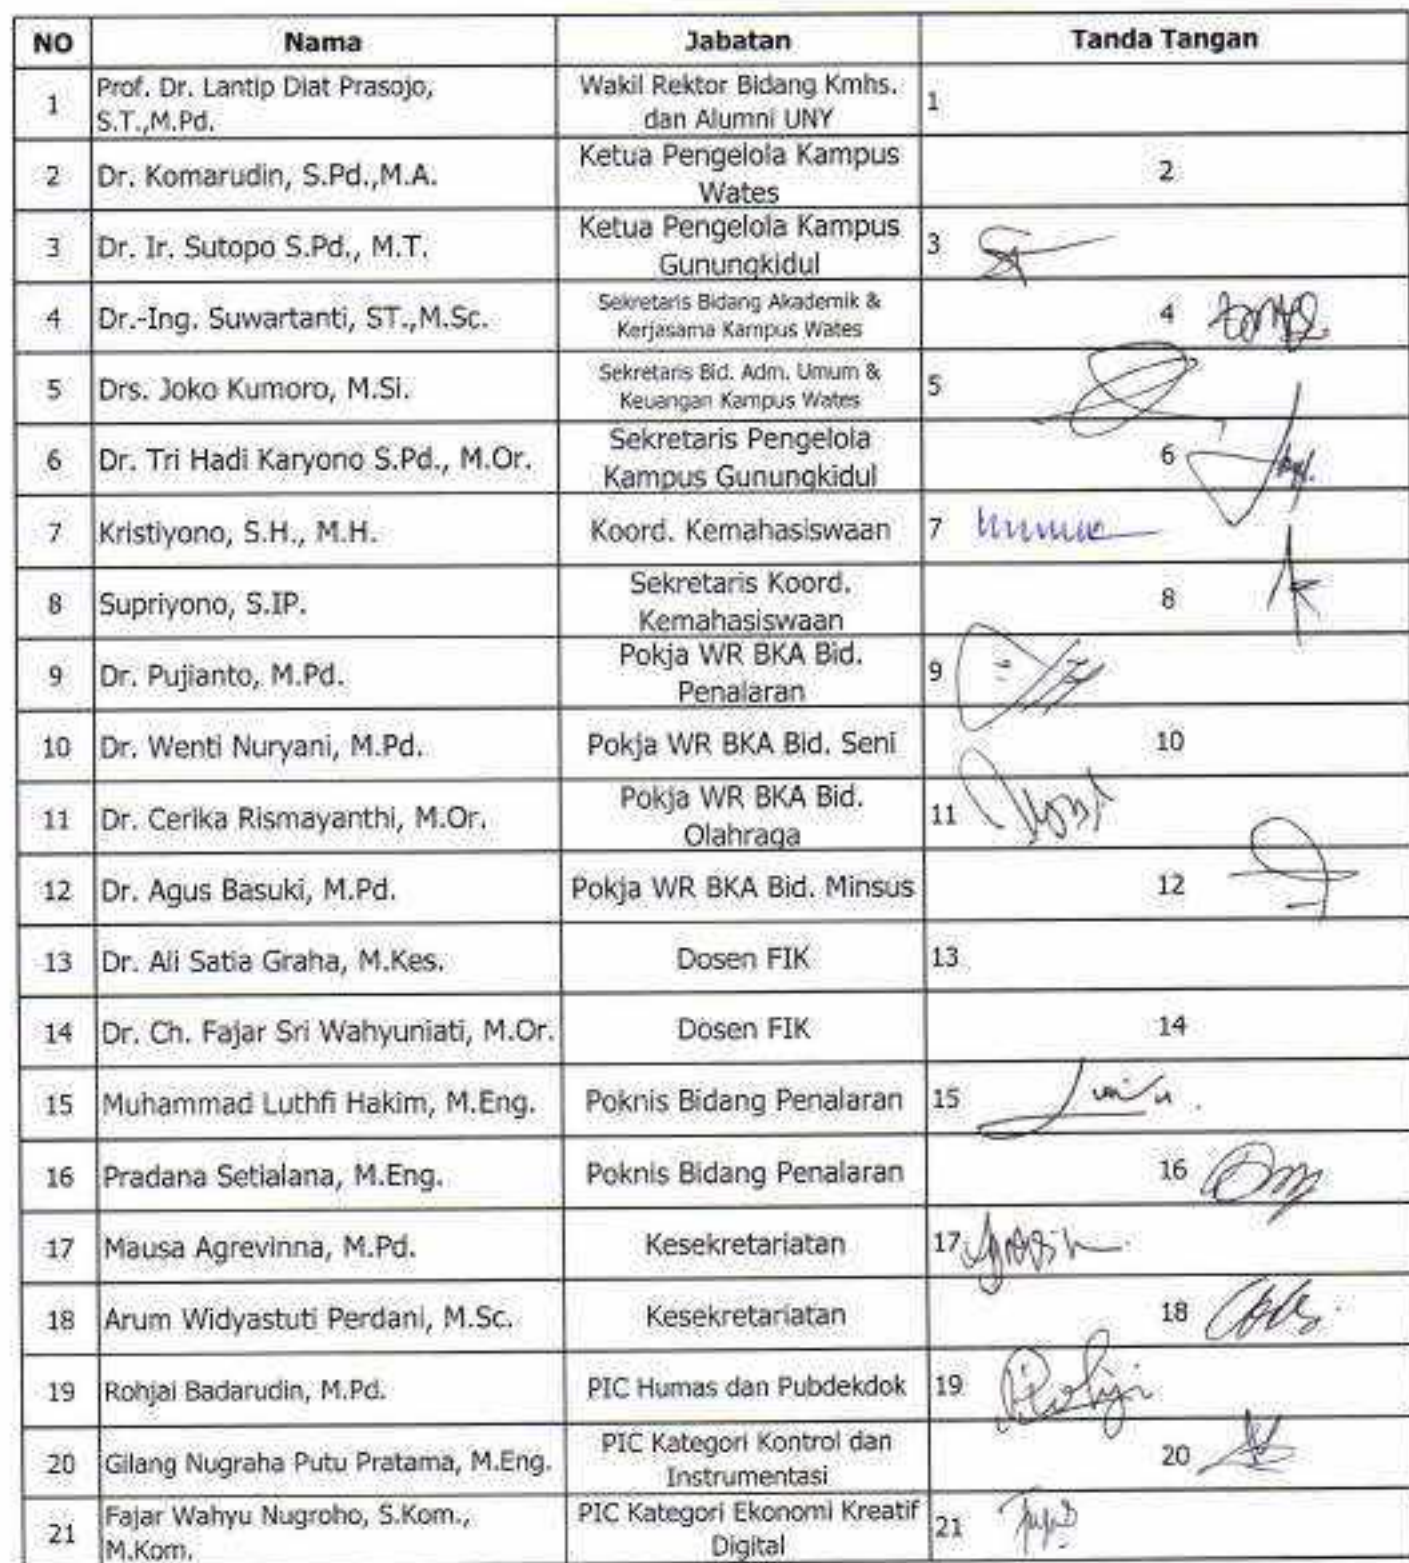 NO Nama Jabatan Tanda Tangan
1 Prof. Dr. Lantip Diat Prasojo, S.T.,M.Pd. Wakil Rektor Bidang Kmhs. dan Alumni UNY 1
2 Dr. Komarudin, S.Pd.,M.A. Ketua Pengelola Kampus Wates 2
3 Dr. Ir. Sutopo S.Pd., M.T. Ketua Pengelola Kampus Gunungkidul 3
4 Dr.-Ing. Suwartanti, ST.,M.Sc. Sekretaris Bidang Akademik & Kerjasama Kampus Wates 4
5 Drs. Joko Kumoro, M.Si. Sekretaris Bid. Adm. Umum & Keuangan Kampus Wates 5
6 Dr. Tri Hadi Karyono S.Pd., M.Or. Sekretaris Pengelola Kampus Gunungkidul 6
7 Kristiyono, S.H., M.H. Koord. Kemahasiswaan 7
8 Supriyono, S.IP. Sekretaris Koord. Kemahasiswaan 8
9 Dr. Pujianto, M.Pd. Pokja WR BKA Bid. Penalaran 9
10 Dr. Wenti Nuryani, M.Pd. Pokja WR BKA Bid. Seni 10
11 Dr. Cerika Rismayanthi, M.Or. Pokja WR BKA Bid. Olahraga 11
12 Dr. Agus Basuki, M.Pd. Pokja WR BKA Bid. Minsus 12
13 Dr. Ali Satia Graha, M.Kes. Dosen FIK 13
14 Dr. Ch. Fajar Sri Wahyuniati, M.Or. Dosen FIK 14
15 Muhammad Luthfi Hakim, M.Eng. Poknis Bidang Penalaran 15
16 Pradana Setialana, M.Eng. Poknis Bidang Penalaran 16
17 Mausa Agrevinna, M.Pd. Kesekretariatan 17
18 Arum Widyastuti Perdani, M.Sc. Kesekretariatan 18
19 Rohjai Badarudin, M.Pd. PIC Humas dan Pubdekdok 19
20 Gilang Nugraha Putu Pratama, M.Eng. PIC Kategori Kontrol dan Instrumentasi 20
21 Fajar Wahyu Nugroho, S.Kom., M.Kom. PIC Kategori Ekonomi Kreatif Digital 21